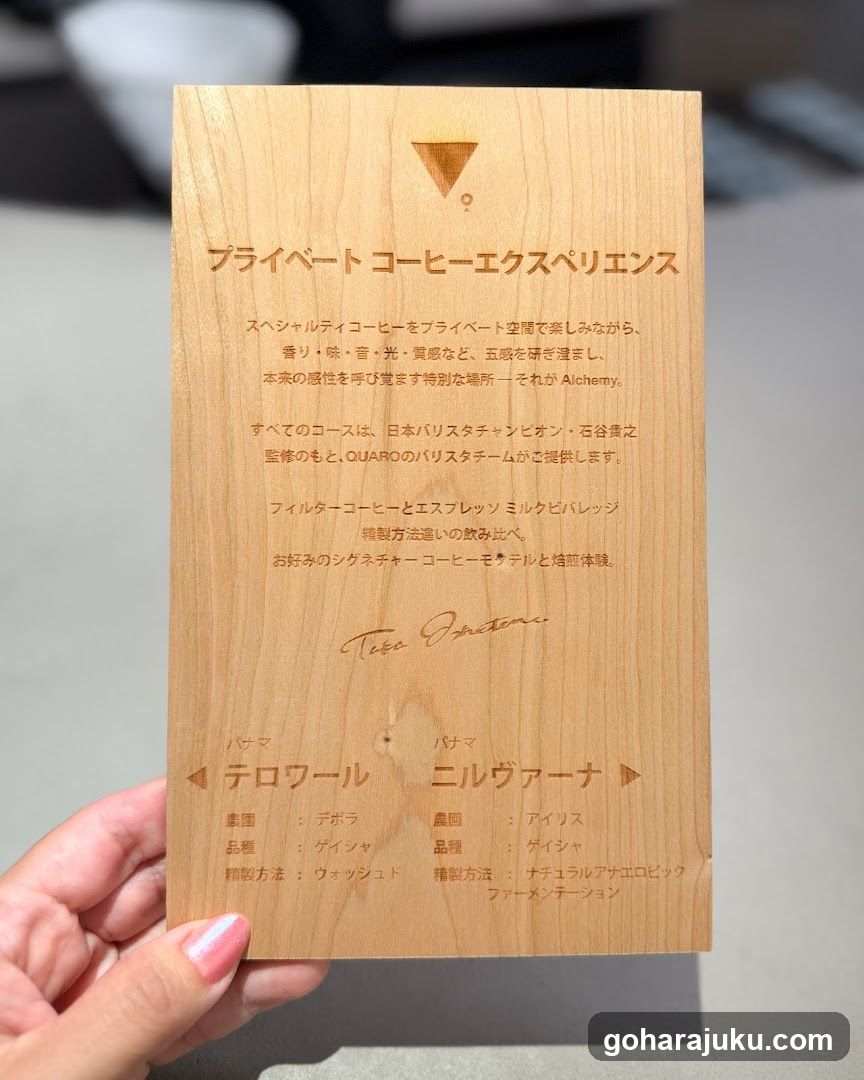 プライベート コーヒーエクスペリエンス
スペシャルティコーヒーをプライベート空間で楽しみながら、
香り・味・音・光・質感など、五感を研ぎ澄まし、
本来の感性を呼び覚ます特別な場所 — それが Alchemy。
すべてのコースは、日本バリスタチャンピオン・石谷貴之
監修のもと、QUAROのバリスタチームがご提供します。
フィルターコーヒーとエスプレッソ ミルクビバレッジ
精製方法違いの飲み比べ。
お好みのシグネチャー コーヒーモクテルと焙煎体験。
パナマ
◀ テロワール
農園 : デボラ
品種 : ゲイシャ
精製方法 : ウォッシュド
パナマ
ニルヴァーナ ▶
農園 : アイリス
品種 : ゲイシャ
精製方法 : ナチュラルアナエロビック
ファーメンテーション
goharajuku.com